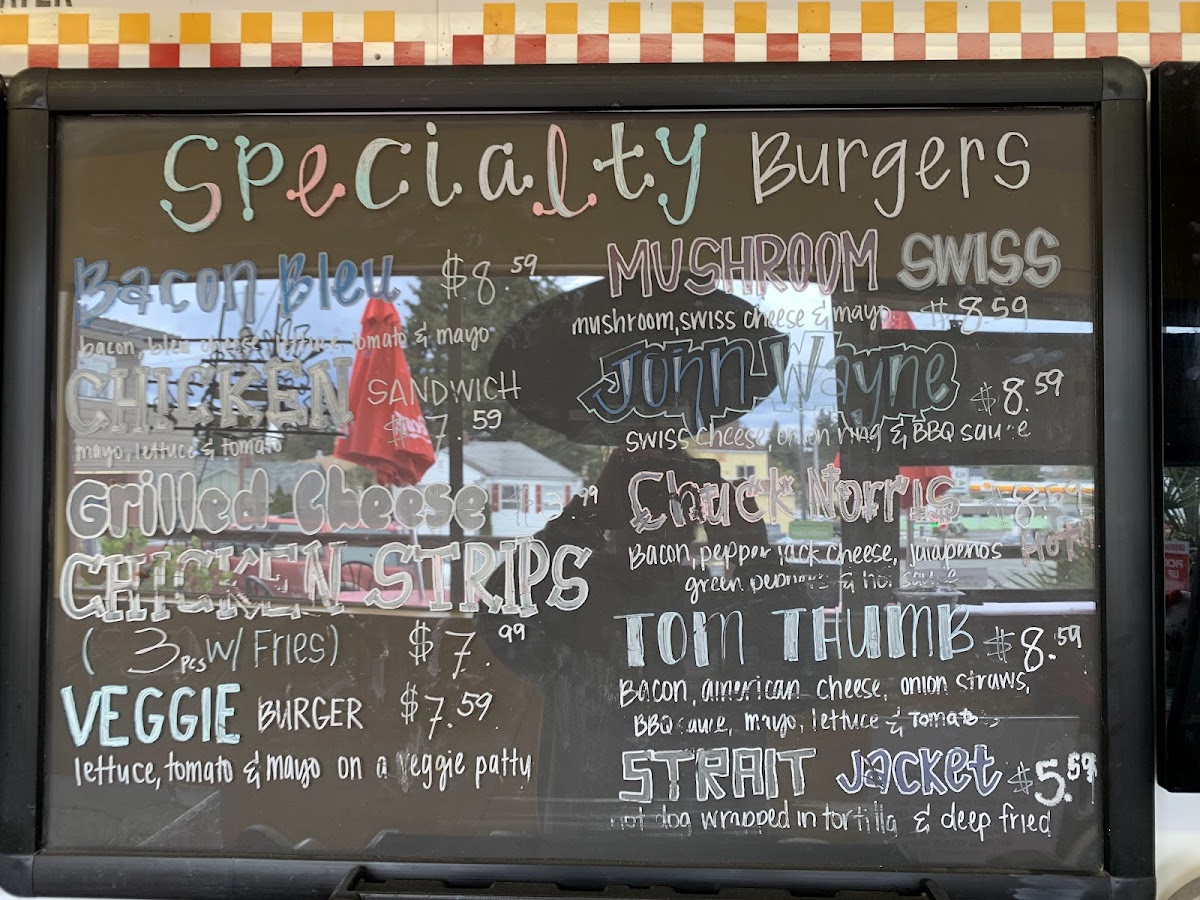 Specialty Burgers
Bacon Bleu $8.59
bacon, bleu cheese, lettuce tomato & mayo
CHICKEN SANDWICH
$7.59
mayo, lettuce & tomato
Grilled Cheese
CHICKEN STRIPS
( 3pcs w/ Fries) $7.99
VEGGIE BURGER $7.59
lettuce, tomato & mayo on a veggie patty
MUSHROOM SWISS
mushroom, swiss cheese & mayo $8.59
John Wayne $8.59
swiss cheese, onion ring & BBQ sauce
Chuck Norris $8.59
Bacon, pepper jack cheese, jalapenos HOT
green peppers & hot sauce
TOM THUMB $8.59
Bacon, american cheese, onion straws,
BBQ sauce, mayo, lettuce & tomato
STRAIT Jacket $5.59
hot dog wrapped in tortilla & deep fried